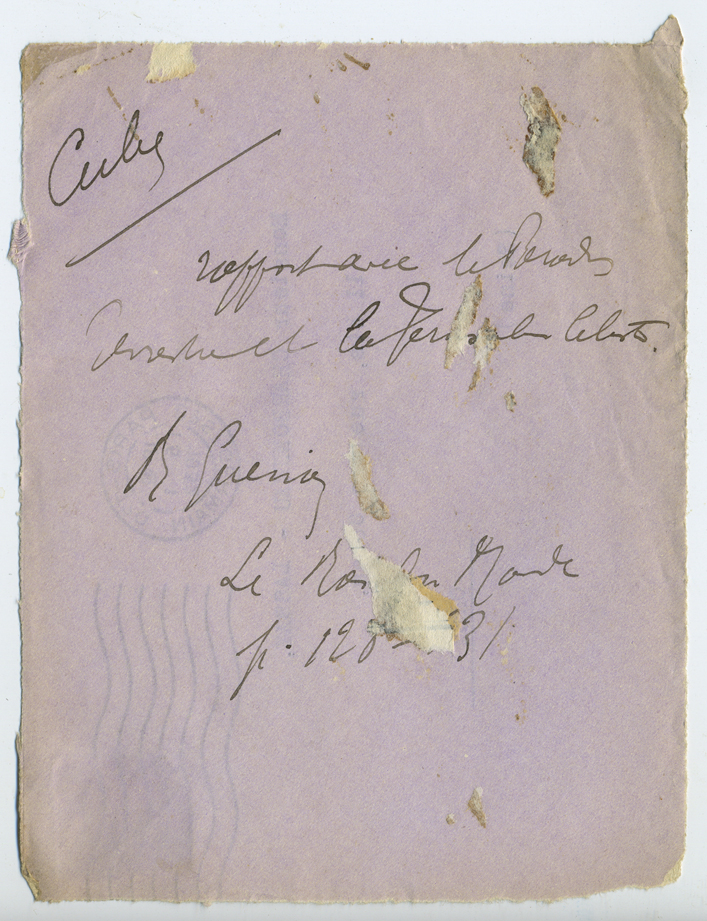 Cube
rapport avec le Paradis
terrestre et la Jérusalem Céleste.
R Guénon
Le Roi du Monde
p. 128-131